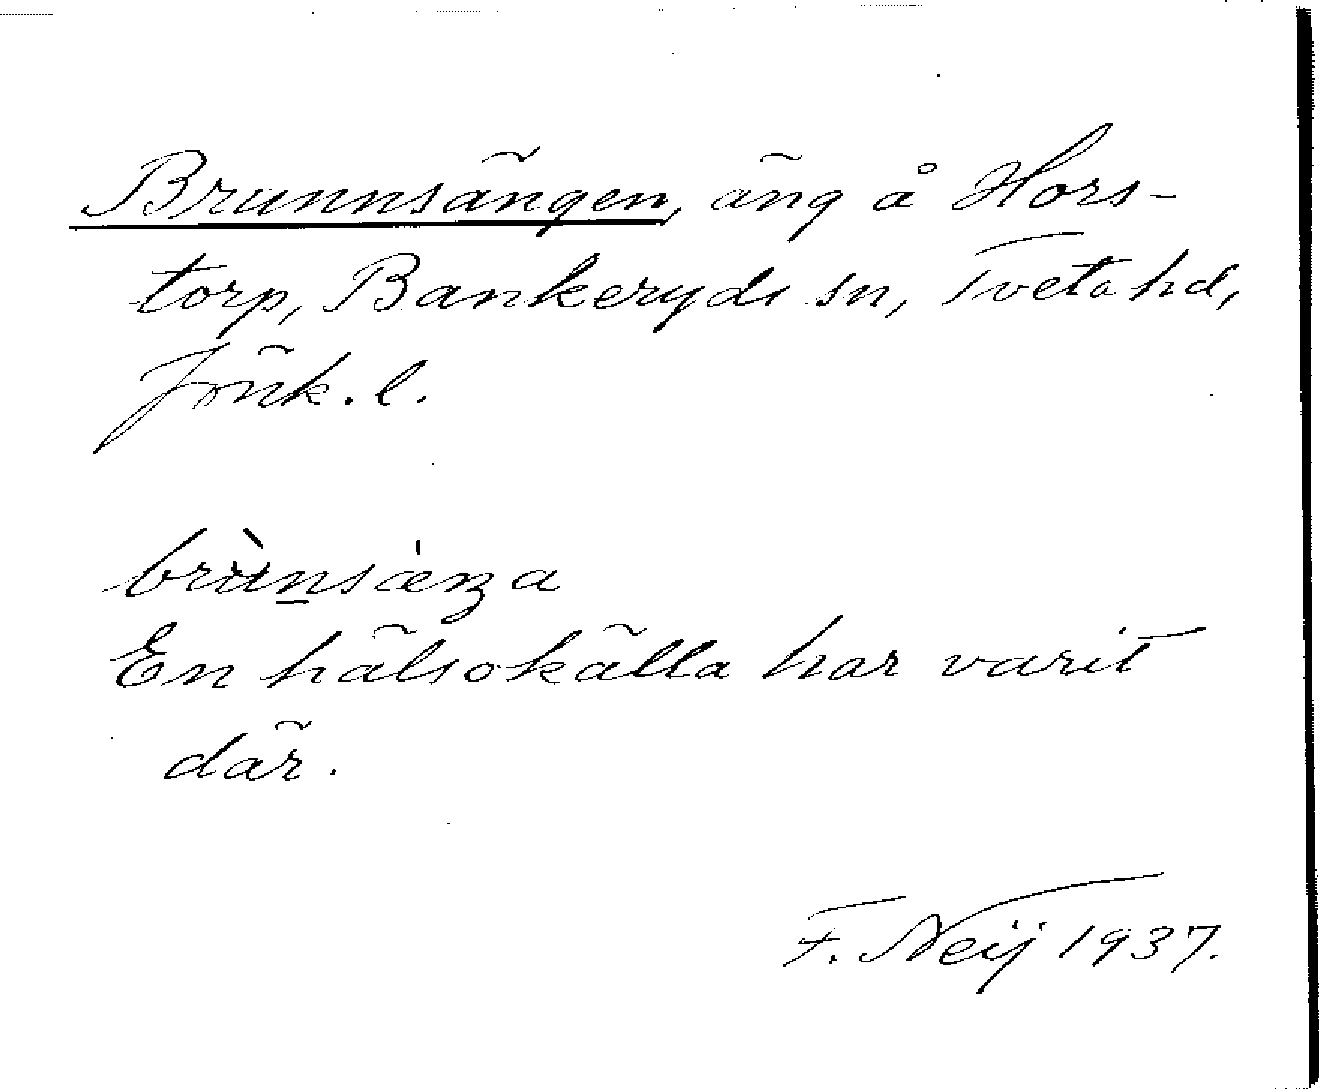 Brunnsängen, äng å Hors-
torp, Bankeryds sn, Tveta hd,
Jönk. l.
brùnsæ̀ŋa
En hälsokälla har varit
där.
F. Neij 1937.